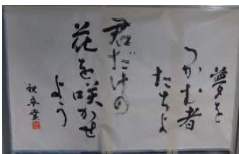 夢を
つかむ者
たちよ
君だけの
花を咲かせ
よう
祝卒業